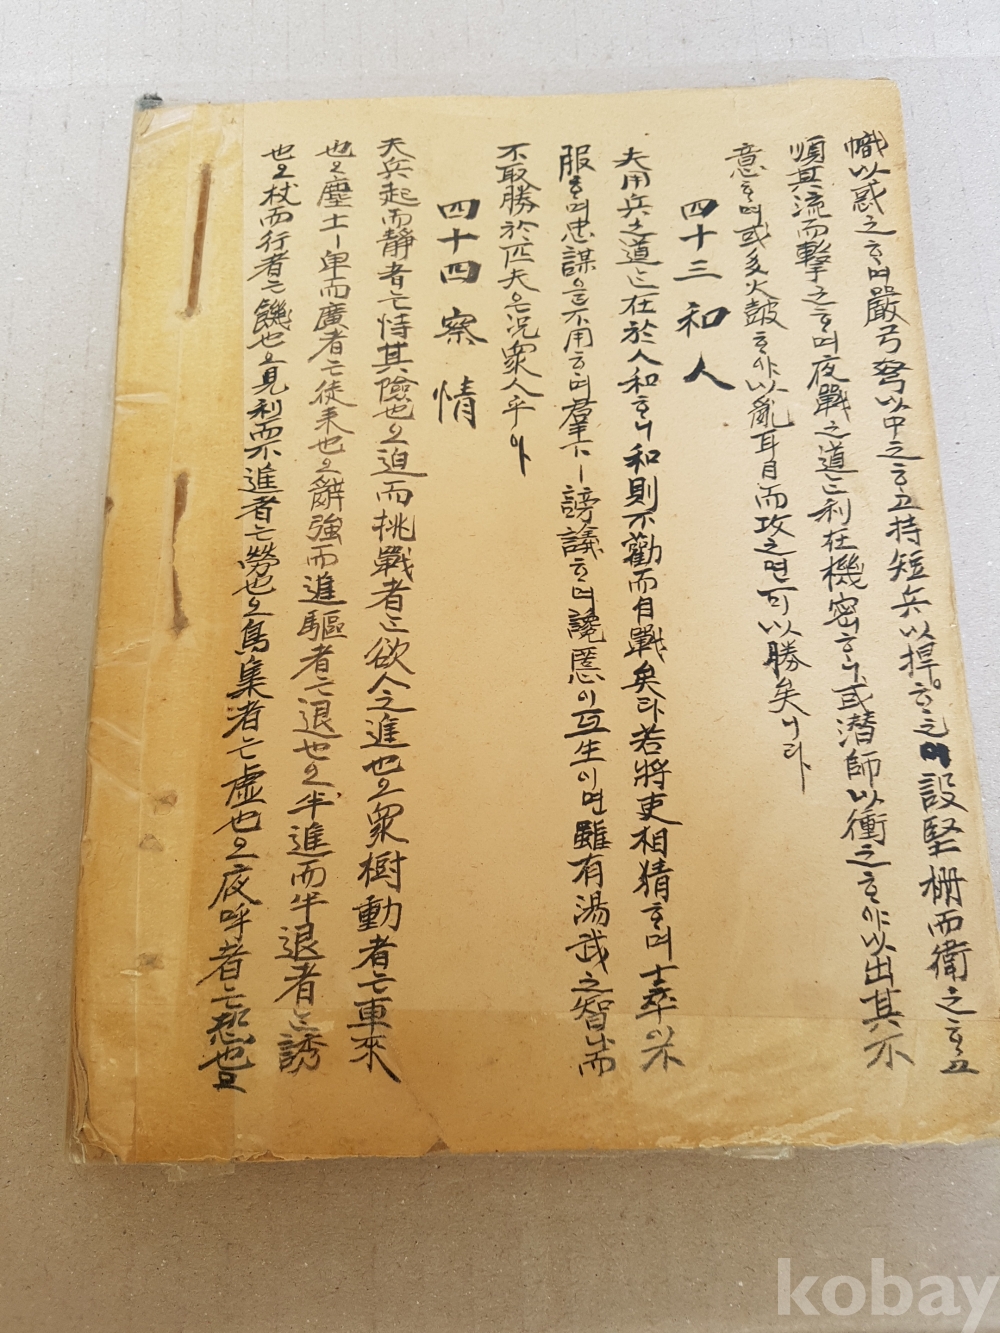 幟以惑之ᄒᆞ며嚴弓弩以中之ᄒᆞ고持短兵以捍ᄒᆞ之며設堅柵而衛之ᄒᆞ고
順其流而擊之ᄒᆞ며夜戰之道ᄂᆞᆫ利在機密ᄒᆞ니或潛師以衝之ᄒᆞ야以出其不
意ᄒᆞ며或多火鼓ᄒᆞ야以亂耳目而攻之면可以勝矣니라
四十三和人
夫用兵之道ᄂᆞᆫ在於人和ᄒᆞ니和則不勸而自戰矣라若將吏相猜ᄒᆞ며士卒이不
服ᄒᆞ며忠謀을不用ᄒᆞ며羣下ㅣ謗議ᄒᆞ며讒慝이互生이면雖有湯武之智而
不取勝於匹夫은况衆人乎아
四十四察情
夫兵起而靜者는恃其險也오迫而挑戰者는欲人之進也오衆樹動者는車來
也오塵土ㅣ卑而廣者는徒來也오辭強而進驅者는退也오半進而半退者는誘
也오杖而行者는饑也오見利而不進者는勞也오鳥集者는虛也오夜呼者는恐也오
kobay